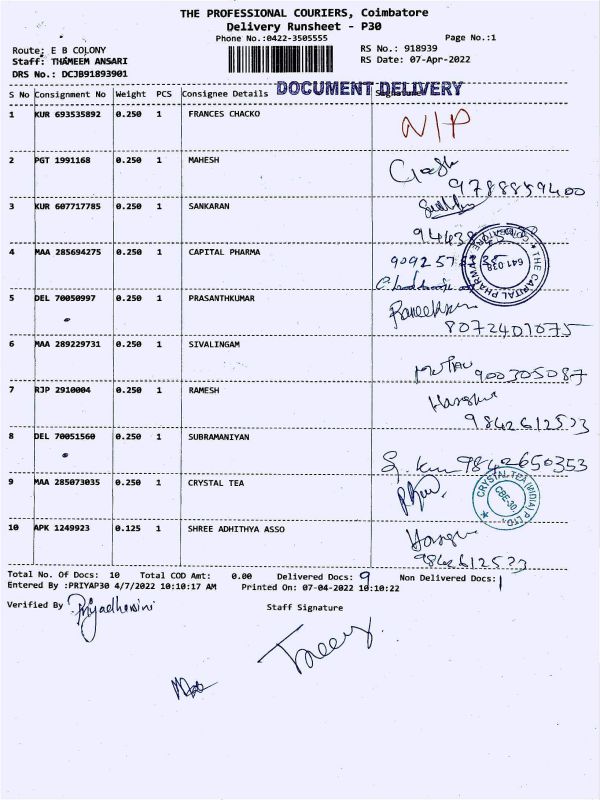 THE PROFESSIONAL COURIERS, Coimbatore
Delivery Runsheet - P30
Phone No.:0422-3505555
Page No.:1
Route: E B COLONY
RS No.: 918939
Staff: THAMEEM ANSARI
RS Date: 07-Apr-2022
DRS No.: DCJB91893901
DOCUMENT DELIVERY
S No Consignment No Weight PCS Consignee Details Signature
1 KUR 693535892 0.250 1 FRANCES CHACKO N/P
2 PGT 1991168 0.250 1 MAHESH
9788859400
3 KUR 607717785 0.250 1 SANKARAN
4 MAA 285694275 0.250 1 CAPITAL PHARMA
THE CAPITAL PHARMA COIMBATORE 641 038
5 DEL 70050997 0.250 1 PRASANTHKUMAR
8072407075
6 MAA 289229731 0.250 1 SIVALINGAM
900305087
7 RJP 2910004 0.250 1 RAMESH
9842612523
8 DEL 70051560 0.250 1 SUBRAMANIYAN
9842650353
9 MAA 285073035 0.250 1 CRYSTAL TEA
CRYSTAL TEA (INDIA) P LTD. CBE-30.
10 APK 1249923 0.125 1 SHREE ADHITHYA ASSO
9842612523
Total No. Of Docs: 10 Total COD Amt: 0.00 Delivered Docs: 9 Non Delivered Docs: 1
Entered By :PRIYAP30 4/7/2022 10:10:17 AM Printed On: 07-04-2022 10:10:22
Verified By Priyadharsini
Staff Signature